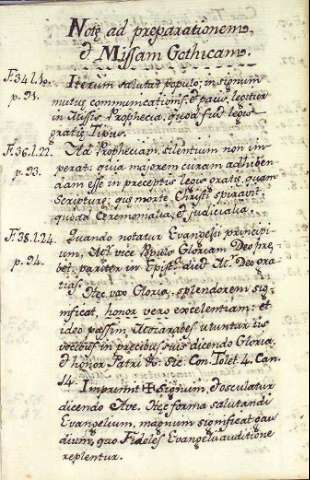 Notę ad preparationem,
& Missam Gothicam.
F.34 l.10.
p. 91.
Iterum salutat populo; in signum
mutuę communicationis, & pacis, legitur
in Missis Prophecia, quoad
gratię Typus.
F.36. l.22.
p. 93.
Ad Propheciam silentium non im-
perat: quia majorem curam adhiben-
dam esse in preceptis legis gratię, quam
Scripturę; quę morte Christi spiravit
quoad Ceremonialia, & judicialia.
F.38. l.24.
p. 94.
Quando notatur Evangelii princípi-
um, vice Populi Gloriam Deo pre-
bet; pariter in Epist.
tias.
Hęc vox Gloria, splendorem sig-
nificat, honor vero excelentiam: et
ideo passim Mozarabes utuntur iis
vocibus in precibus suis dicendo Gloria,
& honor Patri &c. Sic. Con. Tolet. 4. Can.
14.
Imprimit ✠ signum, & osculatur
dicendo Ave. Hęc forma salutandi
Evangelium, magnum significat gau-
dium, quo Fideles Evangelii auditione
replentur.